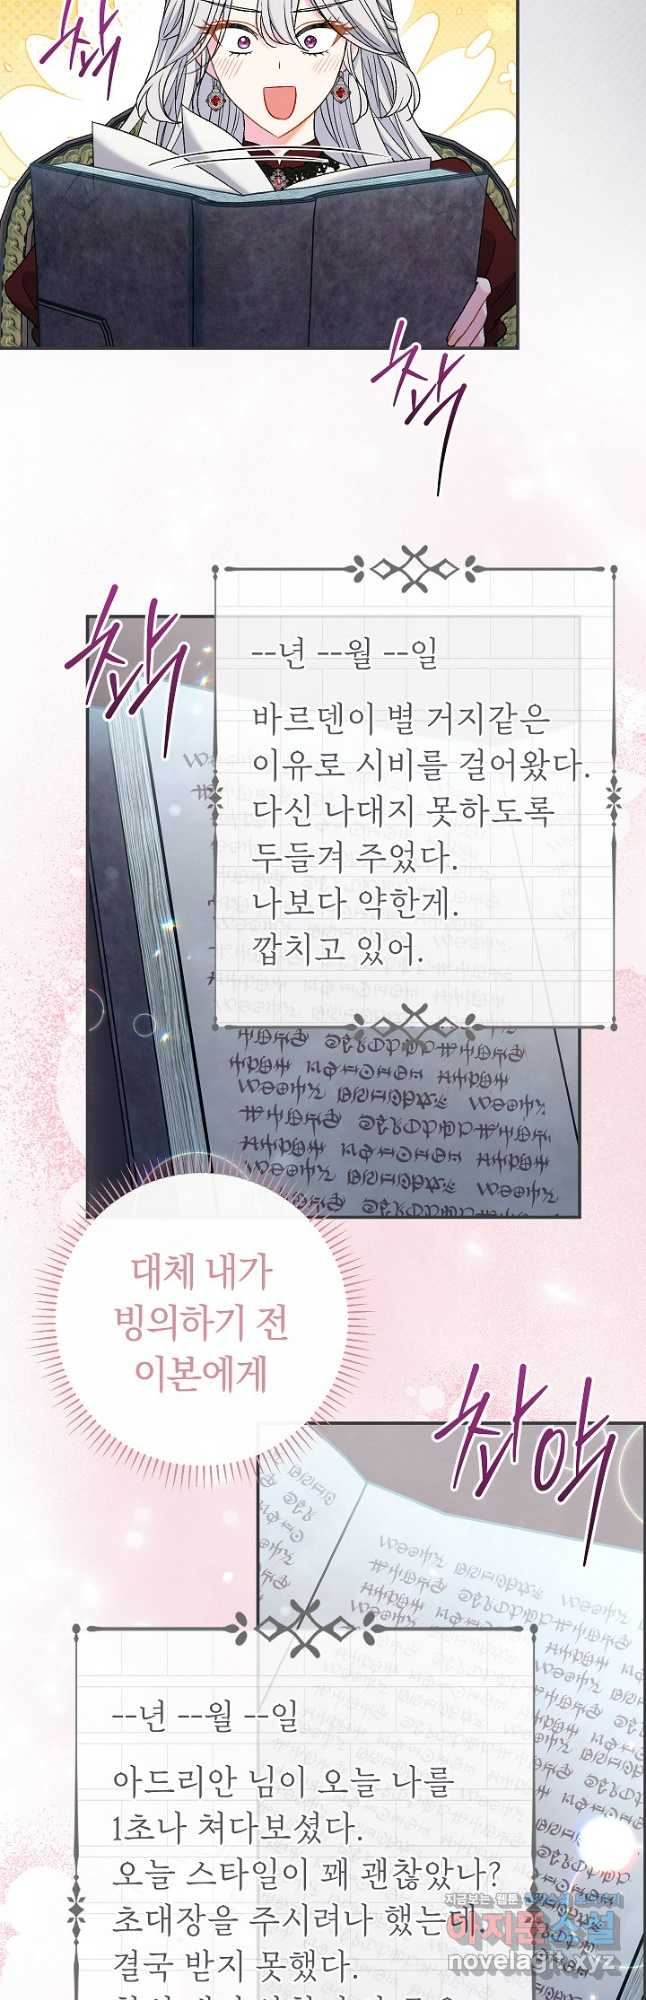 착
착
착
--년 --월 --일
바르덴이 별 거지같은
이유로 시비를 걸어왔다.
다신 나대지 못하도록
두들겨 주었다.
나보다 약한게.
깝치고 있어.
대체 내가
빙의하기 전
이본에게
착악
--년 --월 --일
아드리안 님이 오늘 나를
1초나 쳐다보셨다.
오늘 스타일이 꽤 괜찮았나?
초대장을 주시려나 했는데
결국 받지 못했다.
아지툰소설
novelagit.xyz